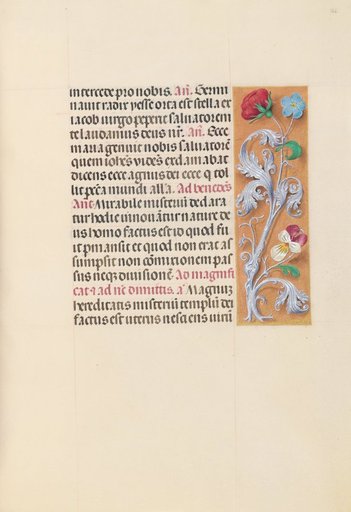 intercede pro nobis. An̄. Germi
nauit radix yesse orta est stella ex
iacob uirgo peperit saluatorem
te laudamus deus nr̄. An̄. Ecce
maria genuit nobis saluatorē
quem ioh̄es uidēs exclamabat
dicens ecce agnus dei ecce q̄ tol
lit pctā mundi allā. Ad benedcs̄
Anā Mirabile misteriū declara
tur hodie innouātur nature de
us homo factus est id quod fu
it pmansit et quod non erat as
sumpsit non cōmixtionem pas
sus neq̄ȝ diuisionē. Ad magnifi
cat et ad nc̄ dimittis. a᷑ Magnūȝ
hereditatis misteriū templū dei
factus est uterus nesciens uirū